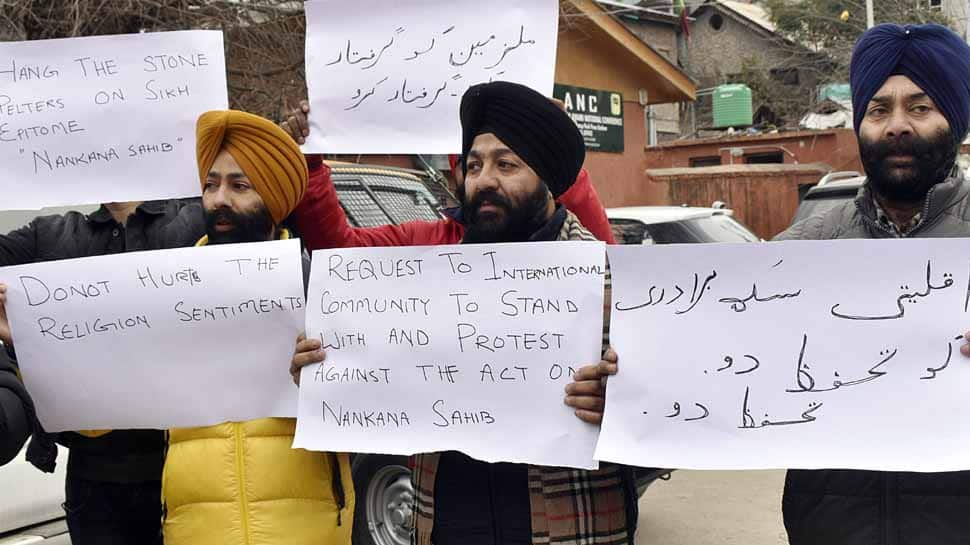 HANG THE STONE
PELTERS ON SIKH
EPITOME
"NANKANA SAHIB"
ملزمین کو گرفتار
گرفتار کرو
ANC
NATIONAL CONFERENCE
DONOT HURTS THE
RELIGION SENTIMENTS
REQUEST TO INTERNATIONAL
COMMUNITY TO STAND
WITH AND PROTEST
AGAINST THE ACT ON
NANKANA SAHIB
اقلیتی سکھ برادری
کو تحفظ دو.
تحفظ دو.